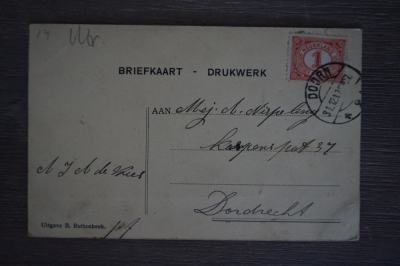 14
BRIEFKAART - DRUKWERK
NEDERLAND
1
DOORN
AAN Mej. A. Nispeling
37
Dordrecht
N J A de Vries
Uitgave B. Ruttenbeek.